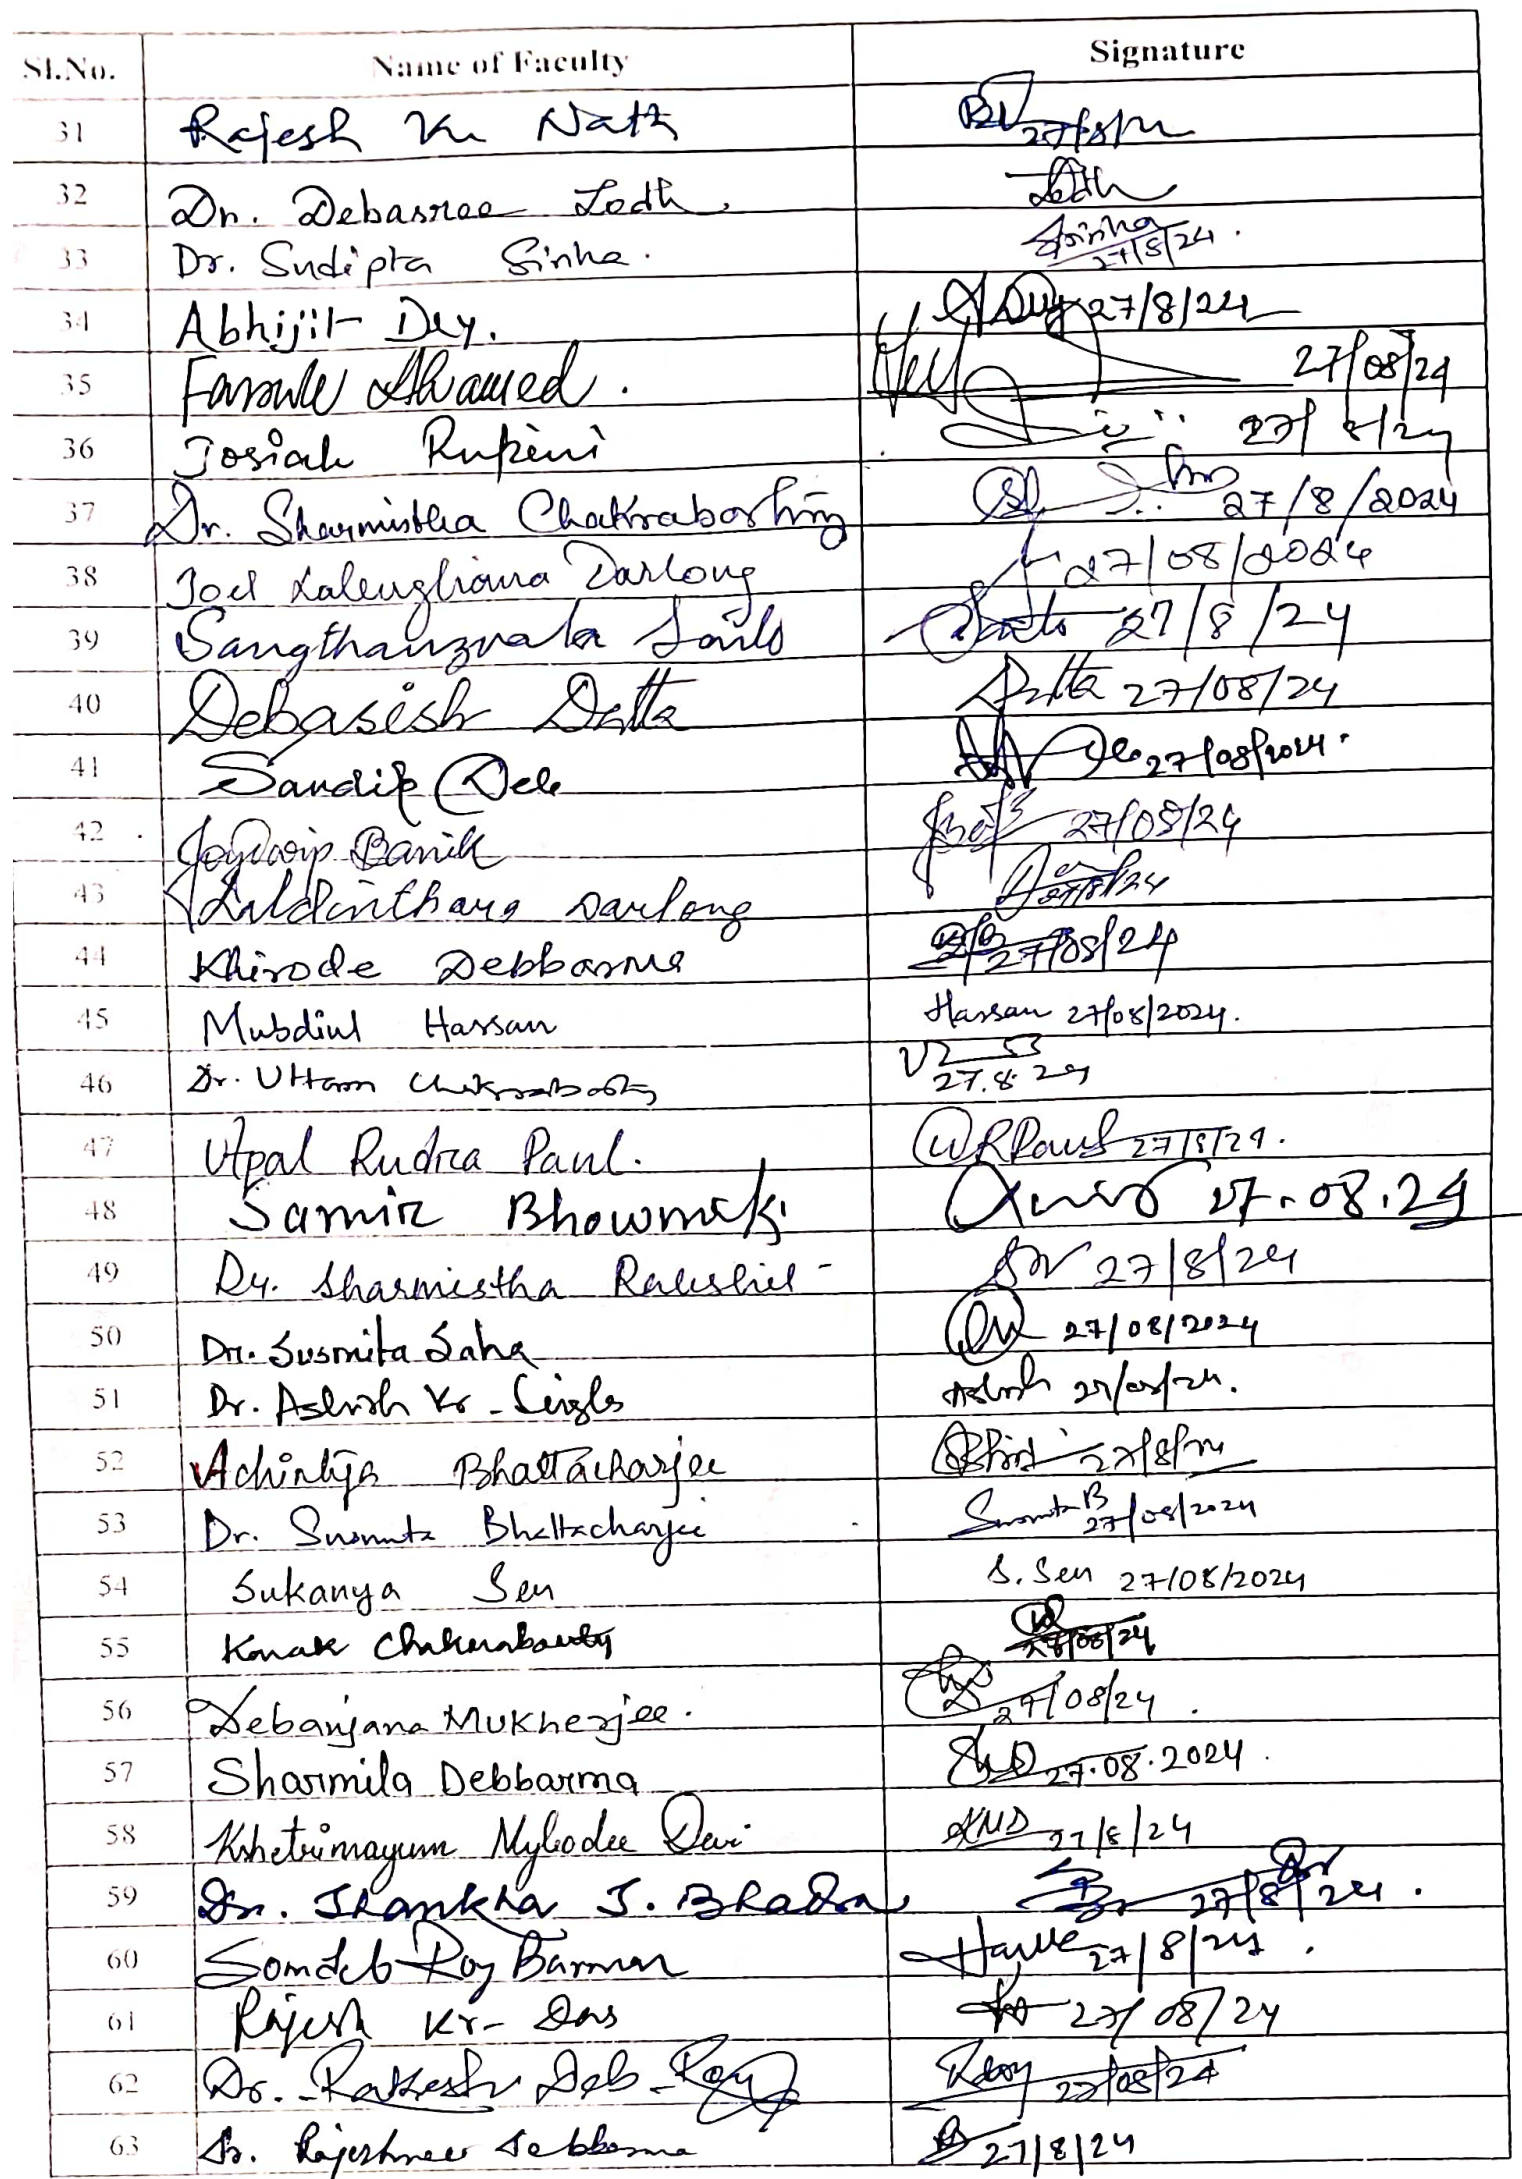 Sl.No. Name of Faculty Signature
31 Rajesh Kr Nath 27/8/24
32 Dr. Debasree Lodh Lodh
33 Dr. Sudipta Sinha. Ssinha 27/8/24.
34 Abhijit Dey. ADey 27/8/24
35 Ahamed. 27/08/24
36 Josiah Rupini 27/8/24
37 Dr. Sharmistha Chakraborty 27/8/2024
38 Joel Darlong 27/08/2024
39 Sailo 27/8/24
40 Debasish Datta Datta 27/08/24
41 Sandip Deb 27/08/2024.
42 Joydwip Banik 27/08/24
43 Darlong 27/8/24
44 Khirode Debbarma 27/08/24
45 Mubdiul Hassan Hassan 27/08/2024.
46 Dr. Uttam Chakraborty 27.8.24
47 Utpal Rudra Paul. URPaul 27/8/24.
48 Samir Bhowmik 27.08.24
49 Dr. Sharmistha Rakshit 27/8/24
50 Dr. Susmita Saha 27/08/2024
51 Dr. Ashish Kr. Singh Ashish 27/08/24.
52 Achintya Bhattacharjee 27/8/24
53 Dr. Susmita Bhattacharjee Susmita B 27/08/2024
54 Sukanya Sen S. Sen 27/08/2024
55 Kanak Chakraborty 27/08/24
56 Debanjana Mukherjee. 27/08/24.
57 Sharmila Debbarma 27.08.2024.
58 Kshetrimayum Devi KMD 27/8/24
59 Dr. J. Bhadra 27/8/24.
60 Somdeb Roy Barman 27/8/24.
61 Rajesh Kr. Das 27/08/24
62 Dr. Rakesh Deb Roy 27/08/24
63 Dr. Rajeshree Debbarma 27/8/24